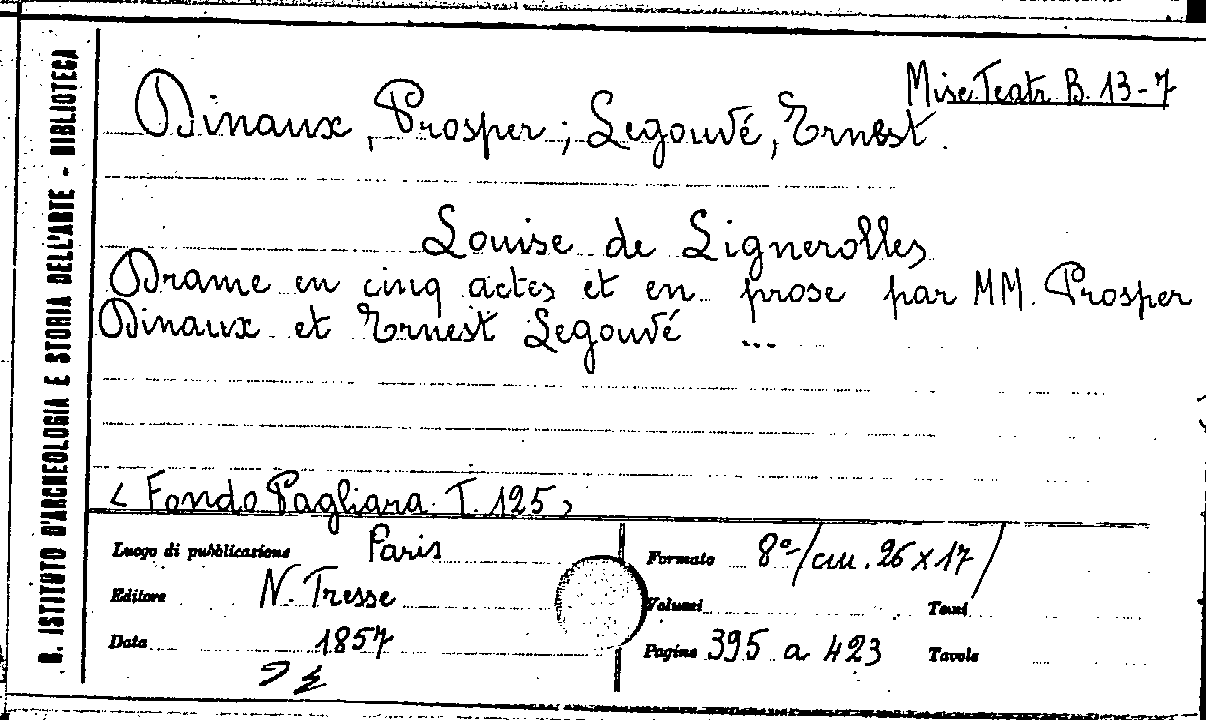 Misc. Teatr. B. 13-7
Dinaux, Prosper; Legouvé, Ernest.
Louise de Lignerolles
Drame en cinq actes et en prose par MM. Prosper
Dinaux et Ernest Legouvé ...
< Fondo Pagliara. T. 125 >
Luogo di pubblicazione Paris
Editore N. Tresse
Data 1857
Formato 8º / cm. 26 x 17 /
Volumi Tomi
Pagine 395 a 423 Tavole
R. ISTITUTO D'ARCHEOLOGIA E STORIA DELL'ARTE - BIBLIOTECA